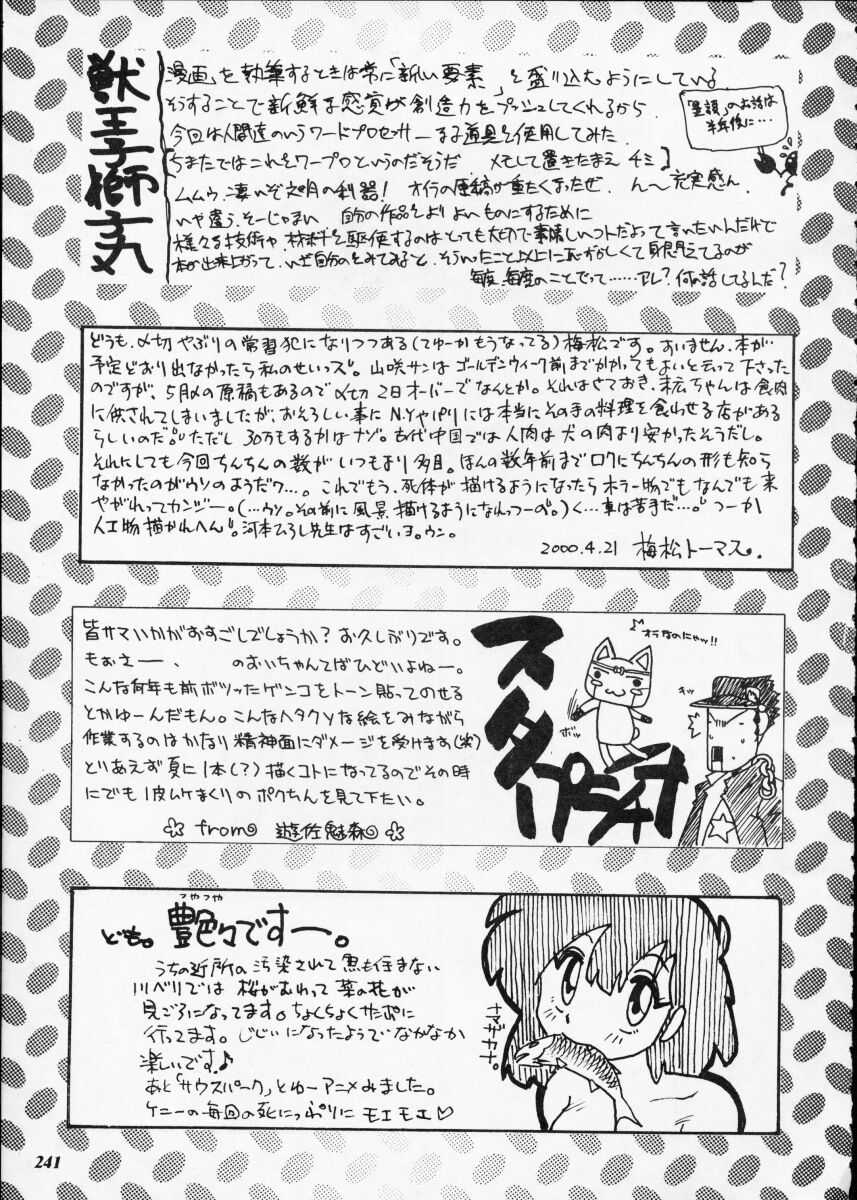 獣王子獅子丸
「漫画」を執筆するときは常に「新しい要素」を盛り込むようにしている
そうすることで新鮮な感覚が創造力をプッシュしてくれるから。
今回は人間達のいうワードプロセッサーなる道具を使用してみた
[ちまたではこれをワープロというのだそうだ メモして置きたまえ チミ]
ムムウ、凄いぞ文明の利器! オイラの原稿が重たくなったぜ。 ん〜充実感ん。
いや違う、そーじゃない 自分の作品をよりよいものにするために
様々な技術や材料を駆使するのはとっても大切で素晴しいコトだよって言いたいんだけど
本が出来上がって、いざ自分のをみてみると、そういったこと以上に恥ずかしくて身悶えてるのが
毎度、毎度のことでって……アレ?何の話してるんだ?
のお話は
半年後に…
どうも、〆切やぶりの常習犯になりつつある(てゆーかもうなってる)梅松です。すいません、本が…
予定どおり出なかったら私のせいっス。山咲サンはゴールデンウィーク前までかかってもよいと云って下さった
のですが、5月〆の原稿もあるので〆切2日オーバーでなんとか。それはさておき、
ちゃんは食肉
に供されてしまいましたが、おそろしい事にN.Yやパリには本当にその手の料理を食わせる店がある
らしいのだ。ただし30万もするかはナゾ。古代中国では人肉は犬の肉より安かったそうだし。
それにしても今回ちんちんの数がいつもより多目。ほんの数年前までロクにちんちんの形も知ら
なかったのがウソのようだワ…。これでもう、死体が描けるようになったらホラー物でもなんでも来
やがれってカンジー。(…ウソ。その前に風景描けるようになれっつーの。)く…車は苦手だ…。つーか
人工物描かれへん。河本ひろし先生はすごいヨ。ウン。
2000.4.21 梅松トーマス。
皆サマいかがおすごしでしょうか?お久しぶりです。
もぉえー、 のおいちゃんてばひどいよねー。
こんな何年も前ボツったゲンコをトーン貼ってのせる
とかゆーんだもん。こんなヘタクソな絵をみながら
作業するのはかなり精神面にダメージを受けます(笑)
とりあえず夏に1本(?)描くコトになってるのでその時
にでも1皮ムケまくりのボクちんを見て下たい。
☆from 遊佐魅森☆
スタープラチナ
♪オラなのにゃッ!!
ボッ
つやつや
ども。艶々ですー。
うちの近所の汚染されて魚も住まない
川ベリでは 桜がおわって 菜の花が
見ごろになってます。ちょくちょくサンポに
行ってます。じじぃになったようでなかなか
楽しいです♪
あと「サウスパーク」とゆーアニメみました。
ケニーの毎回の死にっぷりに モエモエ♡
ナマザカナ。
241